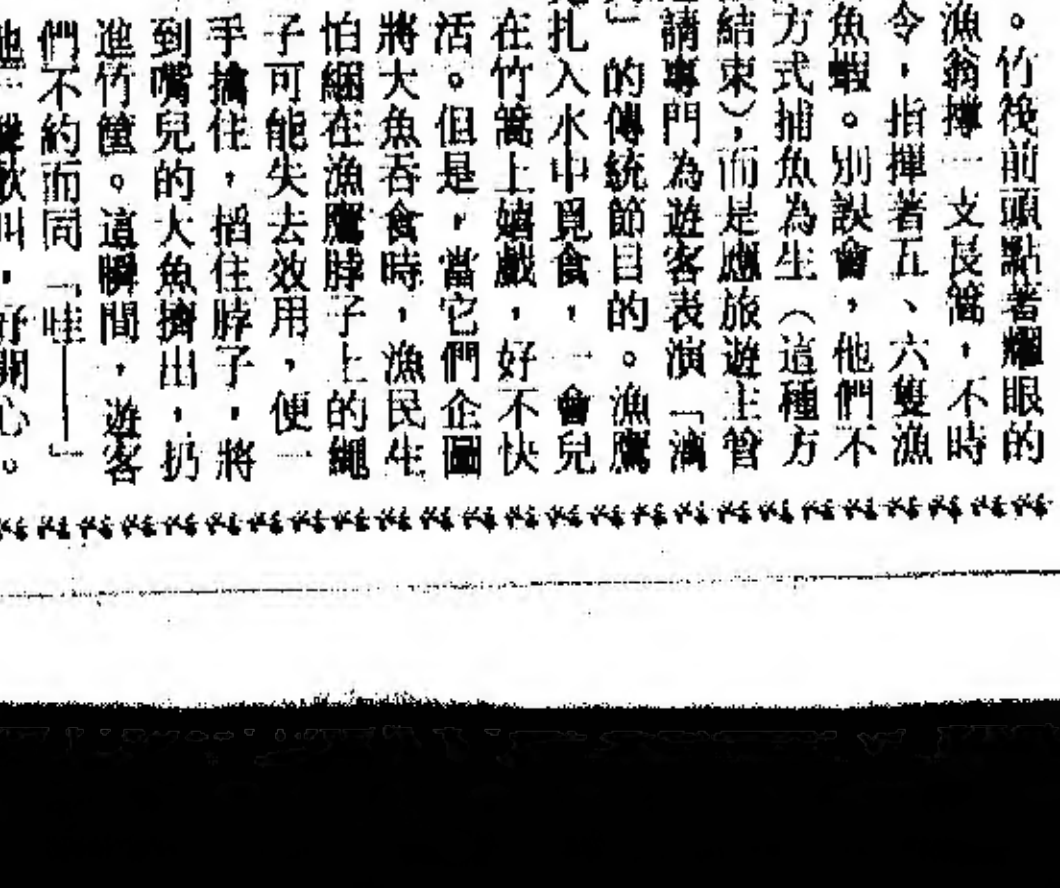 。竹筏前頭點著耀眼的
漁翁撐一支長篙，不時
令，指揮著五、六隻漁
魚蝦。別誤會，他們不
方式捕魚為生（這種方
結束），而是應旅遊主管
請專門為遊客表演「漓
」的傳統節目的。漁鷹
扎入水中覓食，一會兒
在竹篙上嬉戲，好不快
活。但是，當它們企圖
將大魚吞食時，漁民生
怕綑在漁鷹脖子上的繩
子可能失去效用，便一
手擒住，搯住脖子，將
到嘴兒的大魚擠出，扔
進竹筐。這瞬間，遊客
們不約而同「哇——」
地一聲歡叫，好開心。